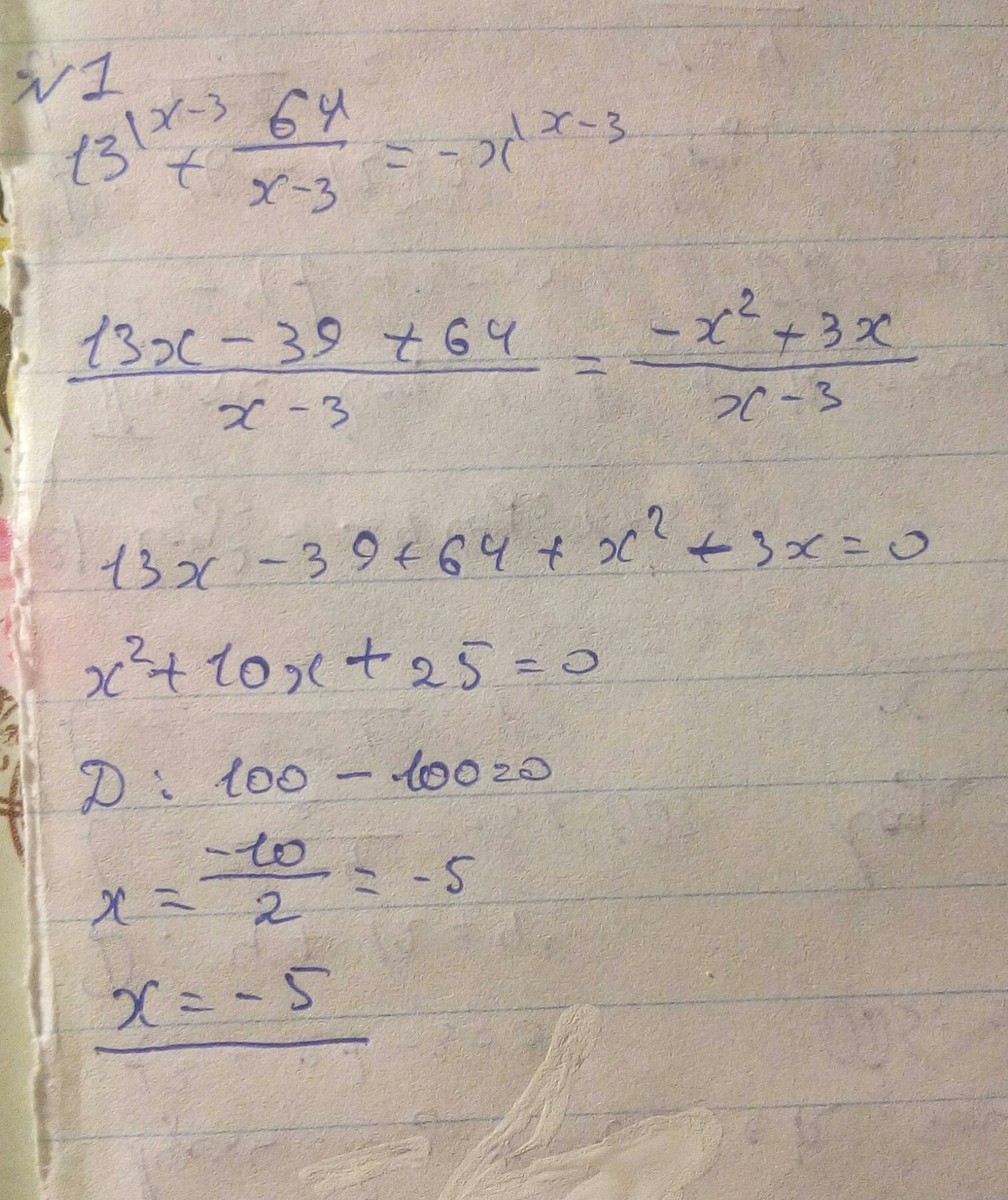 №1
13^{\x-3} + 64/(x-3) = -x^{\x-3}
(13x - 39 + 64)/(x - 3) = (-x² + 3x)/(x - 3)
13x - 39 + 64 + x² - 3x = 0
x² + 10x + 25 = 0
D: 100 - 100 = 0
x = -10/2 = -5
x = -5